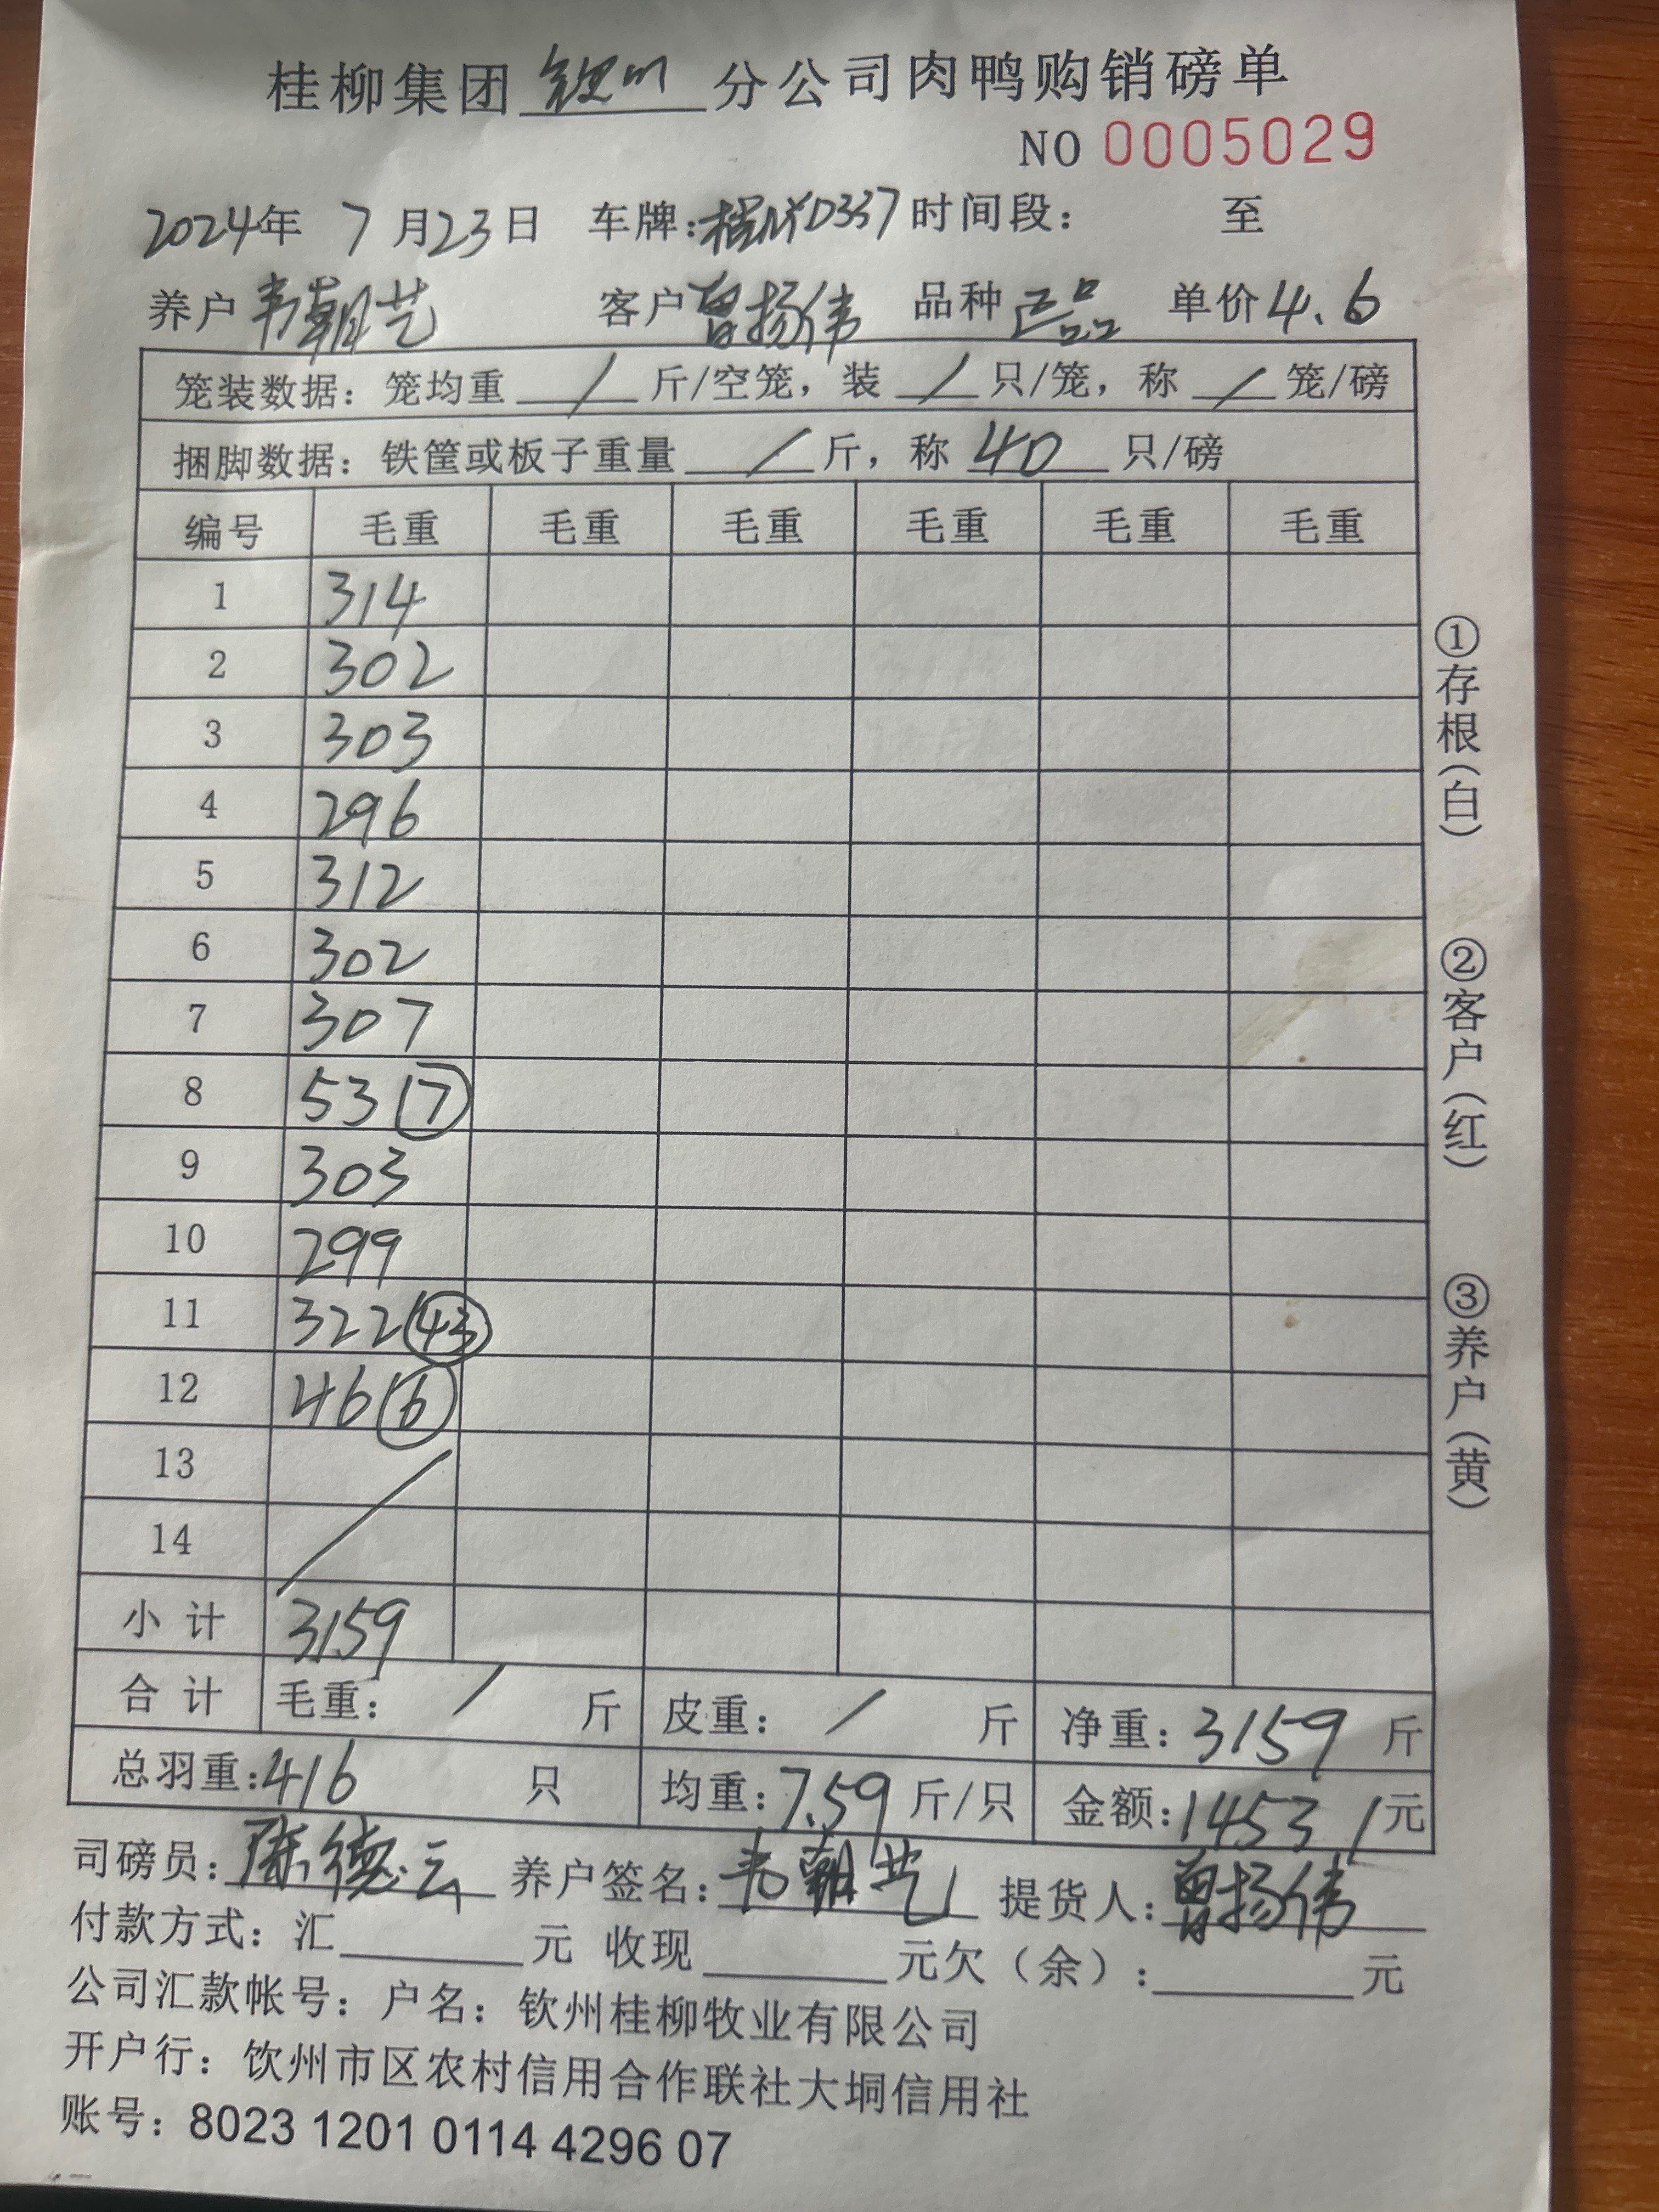 桂柳集团 钦州 分公司肉鸭购销磅单
NO 0005029
2024年 7月23日 车牌:桂NXD337 时间段: 至
养户 韦朝艺 客户 曾扬伟 品种 正品 单价 4.6
笼装数据:笼均重 / 斤/空笼,装 / 只/笼,称 / 笼/磅
捆脚数据:铁筐或板子重量 / 斤,称 40 只/磅
编号 毛重 毛重 毛重 毛重 毛重 毛重
1 314
2 302
3 303
4 296
5 312
6 302
7 307
8 53 (7)
9 303
10 299
11 322 (43)
12 46 (6)
13
14
小计 3159
合计 毛重: / 斤 皮重: / 斤 净重: 3159 斤
总羽重: 416 只 均重: 7.59 斤/只 金额: 14531 元
司磅员: 陈德云 养户签名: 韦朝艺 提货人: 曾扬伟
付款方式:汇 元 收现 元欠(余): 元
公司汇款帐号:户名:钦州桂柳牧业有限公司
开户行:钦州市区农村信用合作联社大垌信用社
账号:8023 1201 0114 4296 07
①存根(白)
②客户(红)
③养户(黄)